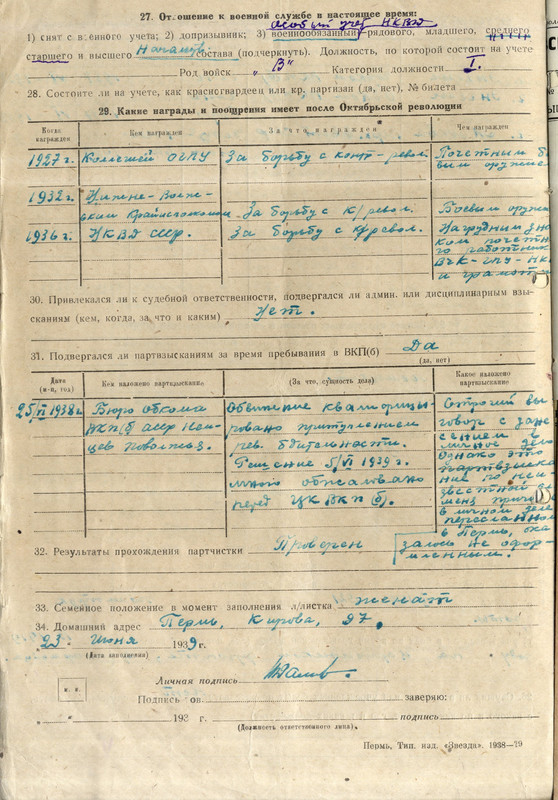 27. Отношение к военной службе в настоящее время:
особый учет НКВД
1) снят с военного учета; 2) допризывник; 3) военнообязанный рядового, младшего, среднего
старшего и высшего начальств. состава (подчеркнуть). Должность, по которой состоит на учете
Род войск „В" Категория должности I.
28. Состоите ли на учете, как красногвардеец или кр. партизан (да, нет), № билета
29. Какие награды и поощрения имеет после Октябрьской революции
Когда награжден Кем награжден За что награжден Чем награжден
1927 г. Коллегией ОГПУ За борьбу с контр-револ. Почетным б
вым оружие
1932 г. Нижне-Волж-
ским Крайисполкомом За борьбу с к/револ. Боевым оружи
1936 г. НКВД ССР. За борьбу с к/револ. Нагрудным зна
ком почетн
го работник
ВЧК-ГПУ-НК
и грамот
30. Привлекался ли к судебной ответственности, подвергался ли админ. или дисциплинарным взы-
сканиям (кем, когда, за что и каким) Нет.
31. Подвергался ли партвзысканиям за время пребывания в ВКП(б) Да
(да, нет)
Дата (м-ц, год) Кем наложено партвзыскание (За что, сущность дела) Какое наложено партвзыскание
25/VI 1938 г Бюро обкома Обвинение квалифициро- Строгий вы
ВКП/б АССР Нем- ровано притуплением говор с зане
цев Поволжья. рев. бдительности. сением в
Решение 5/VI 1939 г. личное дело
мною обжаловано Однако это
перед ЦК ВКП(б). партвзыска
ние по неи
звестной
мне прич
в личном деле
пересланном
в Пермь, ока
залось не офор-
мленным.
32. Результаты прохождения партчистки Проверен
33. Семейное положение в момент заполнения л/листка женат
34. Домашний адрес Пермь, Кирова, 97.
23 июня 1939 г.
(Дата заполнения)
Личная подпись
м. п.
Подпись ов. заверяю:
193 г. подпись
(Должность ответственного лица).
Пермь, Тип. изд. «Звезда». 1938—29